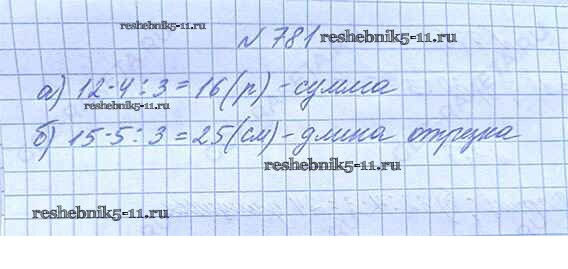 № 781
reshebnik5-11.ru
reshebnik5-11.ru
а) 12·4:3=16(р)-сумма
reshebnik5-11.ru
б) 15·5:3=25(см)-длина отрезка
reshebnik5-11.ru
reshebnik5-11.ru